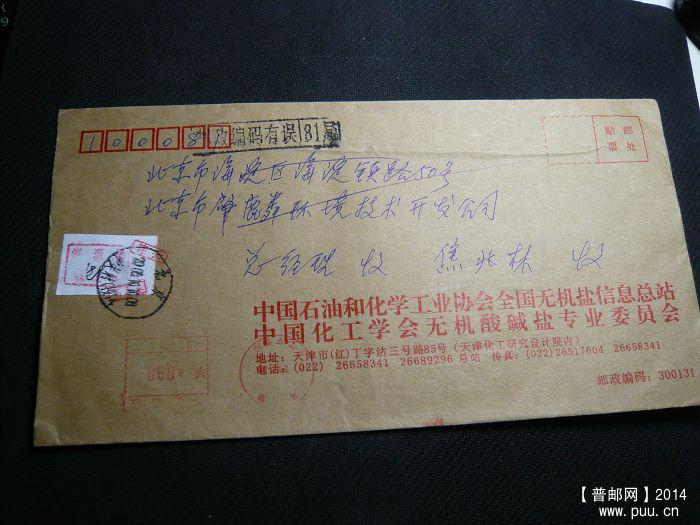 100081
邮政编码有误 81局
贴邮
票处
北京市海淀区海淀镇路50号
北京市肇鹿森环境技术开发公司
总经理 收 焦兆林 收
中国石油和化学工业协会全国无机盐信息总站
中国化工学会无机酸碱盐专业委员会
地址：天津市(红)丁字沽三号路85号（天津化工研究设计院内）
电话：(022) 26658341 26689296 总站 传真：(022)26517604 26658341
邮政编码：300131
080
【普邮网】2014
www.puu.cn